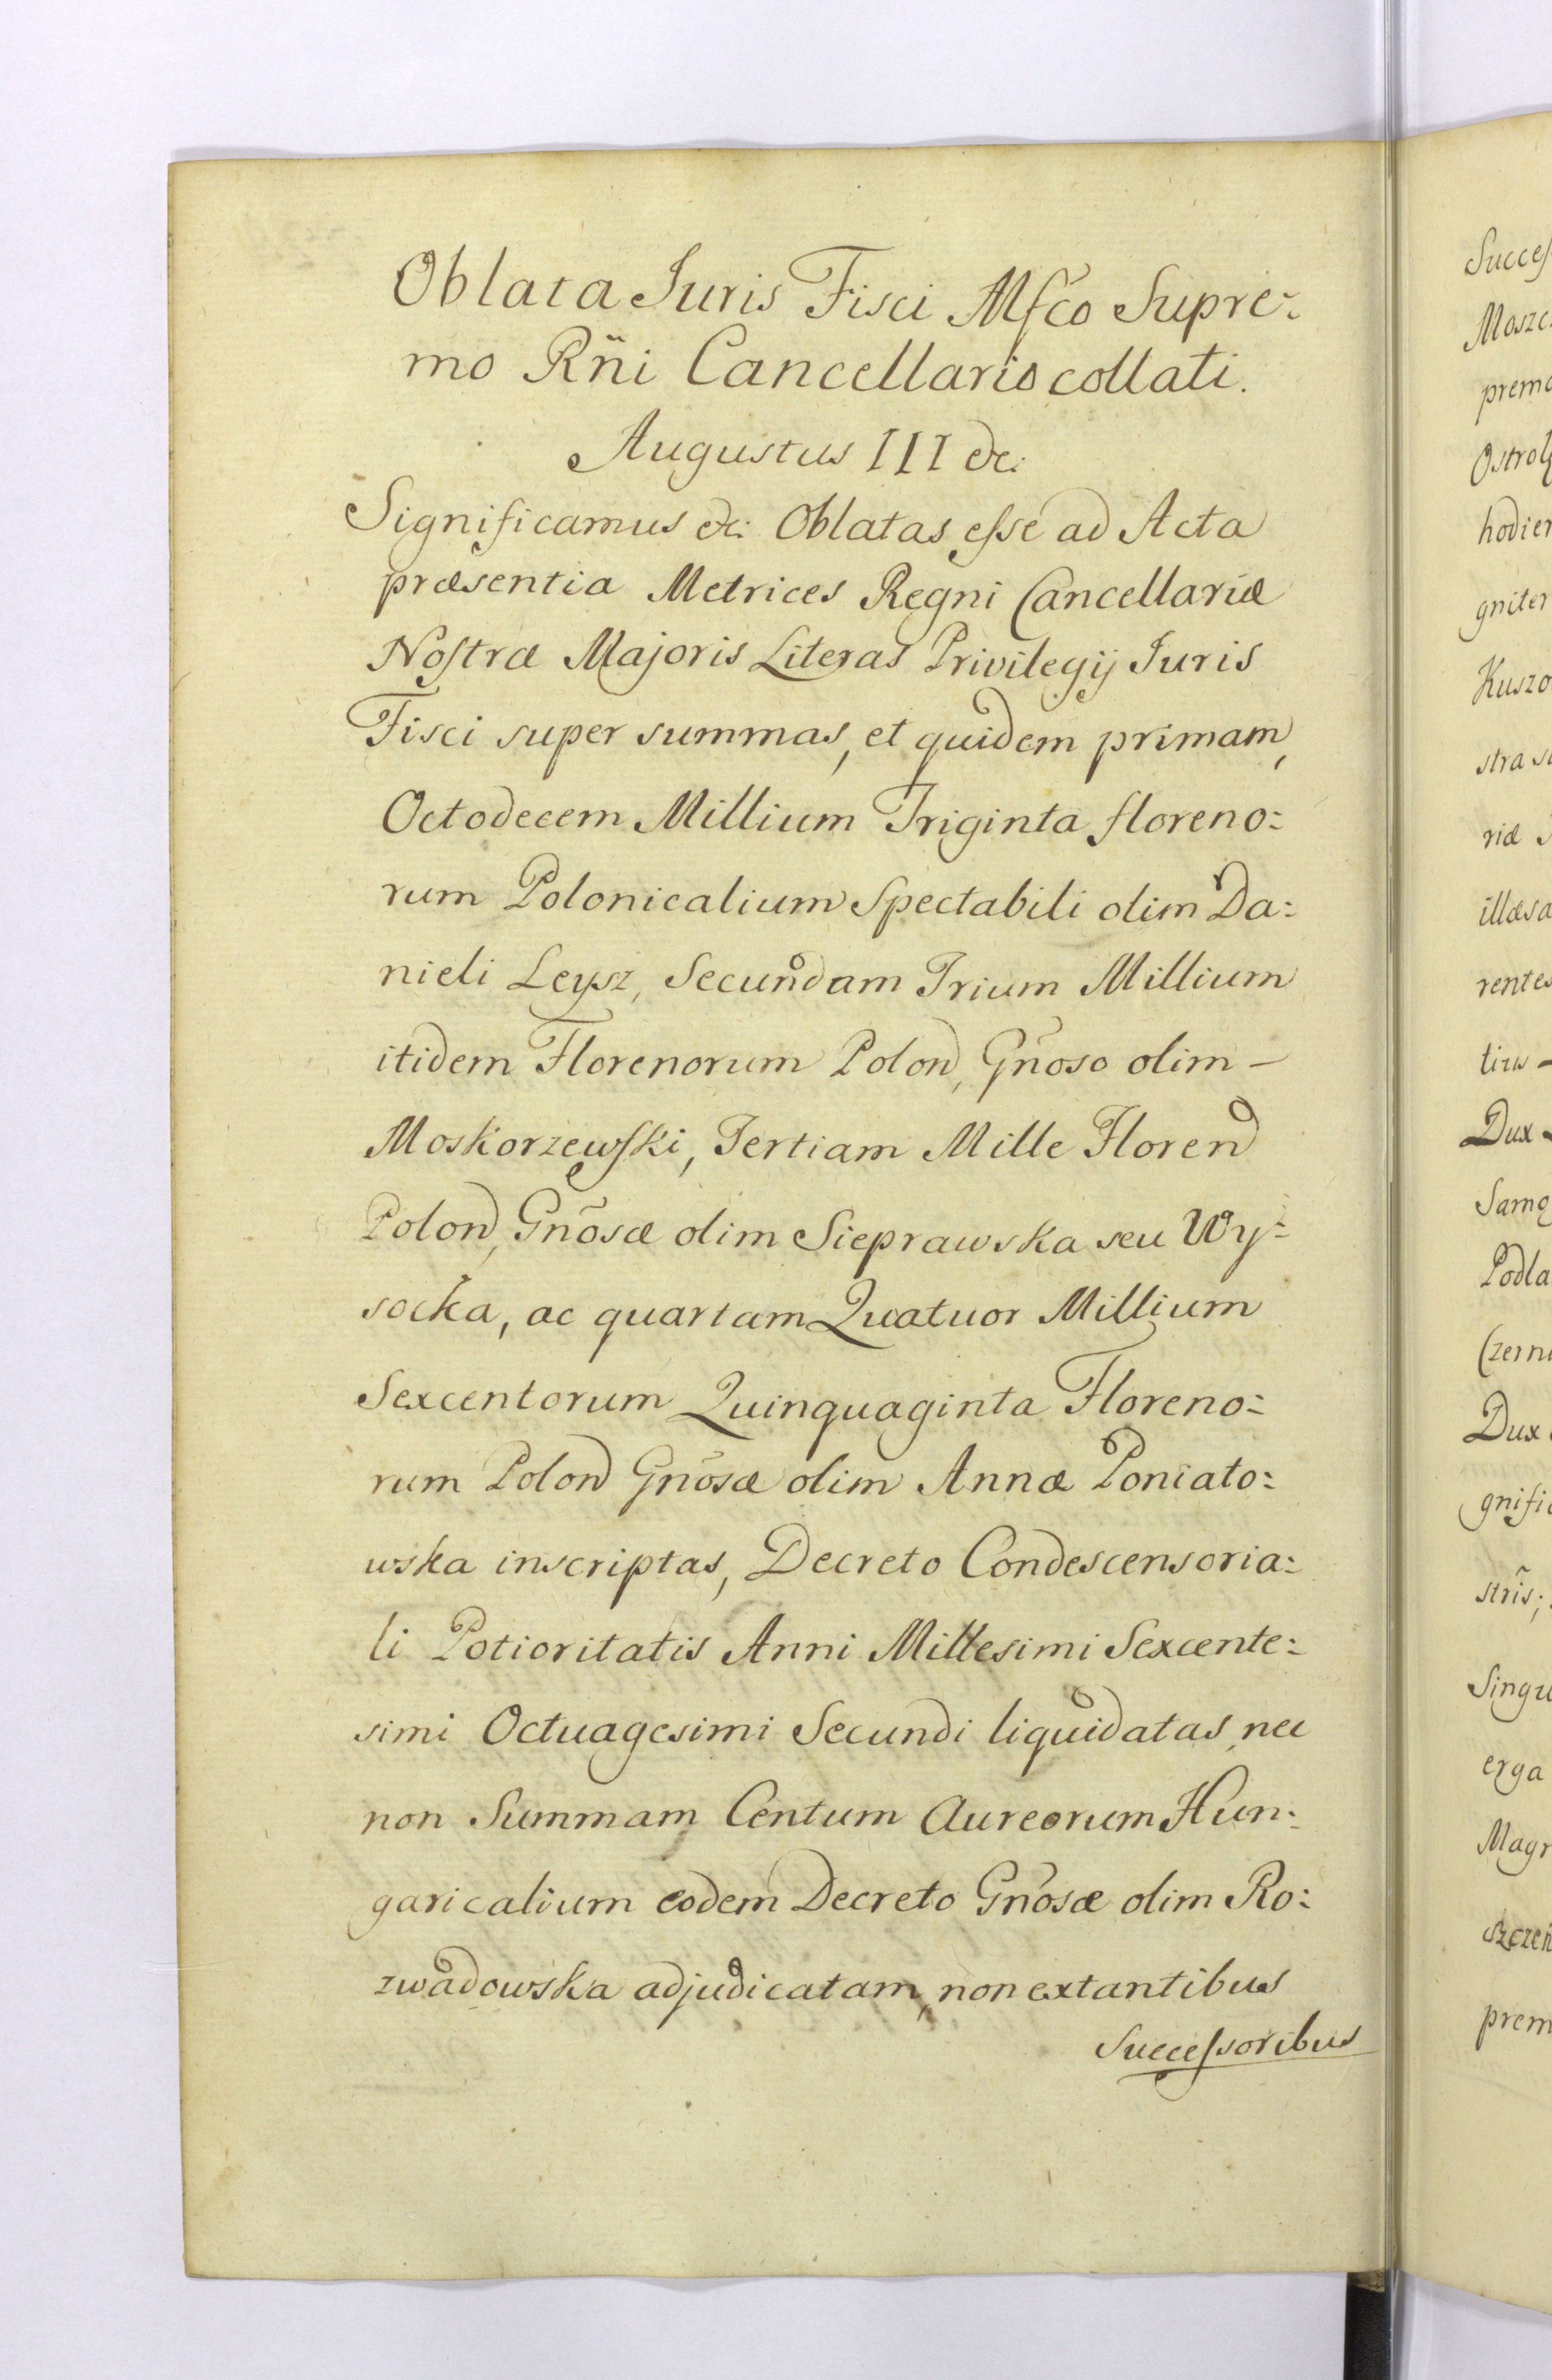 Oblata Juris Fisci Mfco Supre:
mo Rñi Cancellario collati.
Augustus III &c:
Significamus &c: Oblatas esse ad Acta
præsentia Metrices Regni Cancellariæ
Nostræ Majoris Literas Privilegij Juris
Fisci super summas, et quidem primam,
Octodecem Millium Triginta floreno:
rum Polonicalium Spectabili olim Da:
nieli Leysz, Secundam Trium Millium
itidem Florenorum Polon, Gñoso olim –
Moskorzewski, Tertiam Mille Floren
Polon, Gñosæ olim Sieprawska seu Wy:
socka, ac quartam Quatuor Millium
Sexcentorum Quinquaginta Floreno:
rum Polon Gñosæ olim Annæ Poniato:
wska inscriptas, Decreto Condescensoria:
li Potioritatis Anni Millesimi Sexcente:
simi Octuagesimi Secundi liquidatas, nec
non Summam Centum Aureorum Hun:
garicalium eodem Decreto Gñosæ olim Ro:
zwadowska adjudicatam, non extantibus
Successoribus
Succes
Mosze
prema
Ostroł
hodier
gniter
Kuszo
stra
riæ
illæsa
rentes
Dux
Samo
Podla
Czern
Dux
gnifi
strĩs;
Singu
erga
Magn
prem